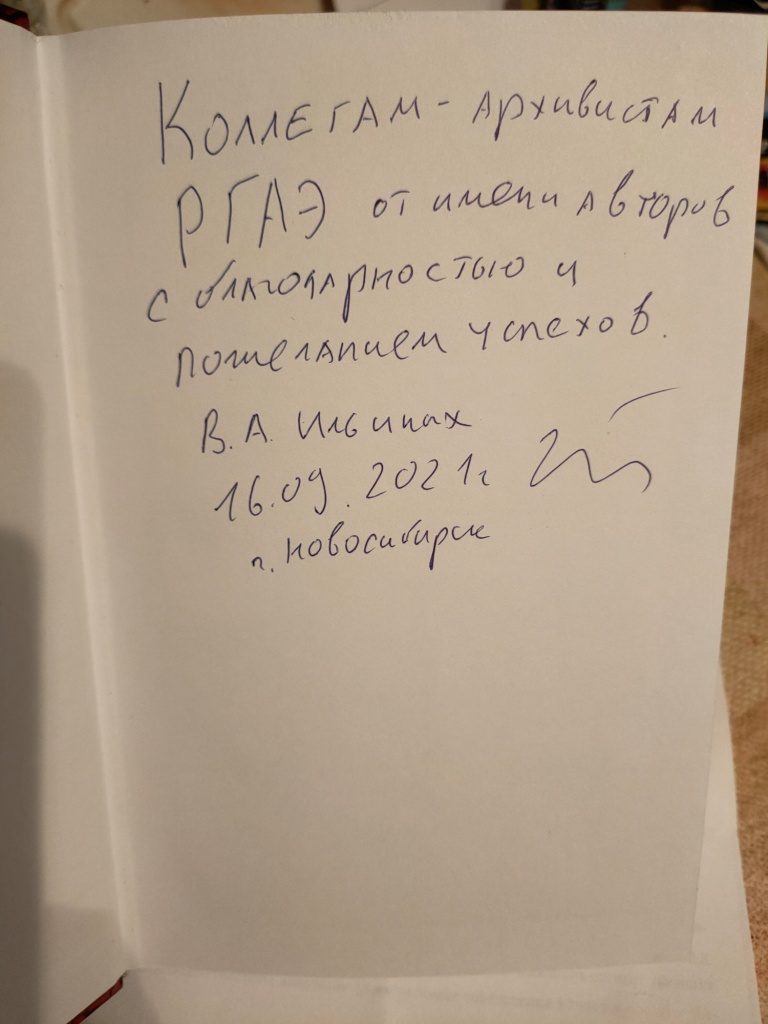 Коллегам - архивистам
РГАЭ от имени авторов
с благодарностью и
пожеланием успехов.
В.А. Ильиных
16.09.2021г
г. Новосибирск